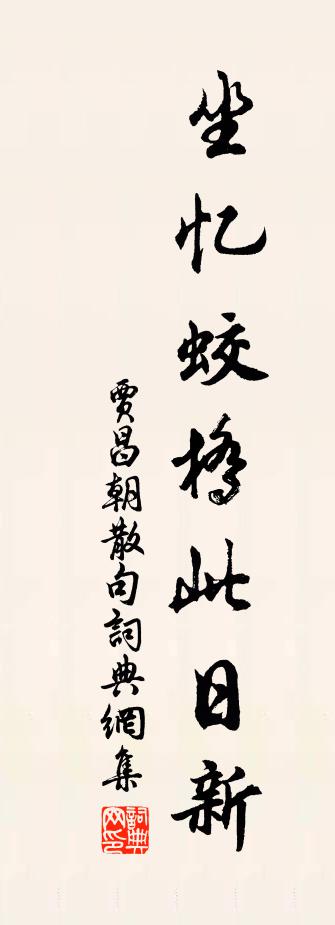 坐忆蛟桥此日新
賈昌朝散句詞典網集
詞典网印